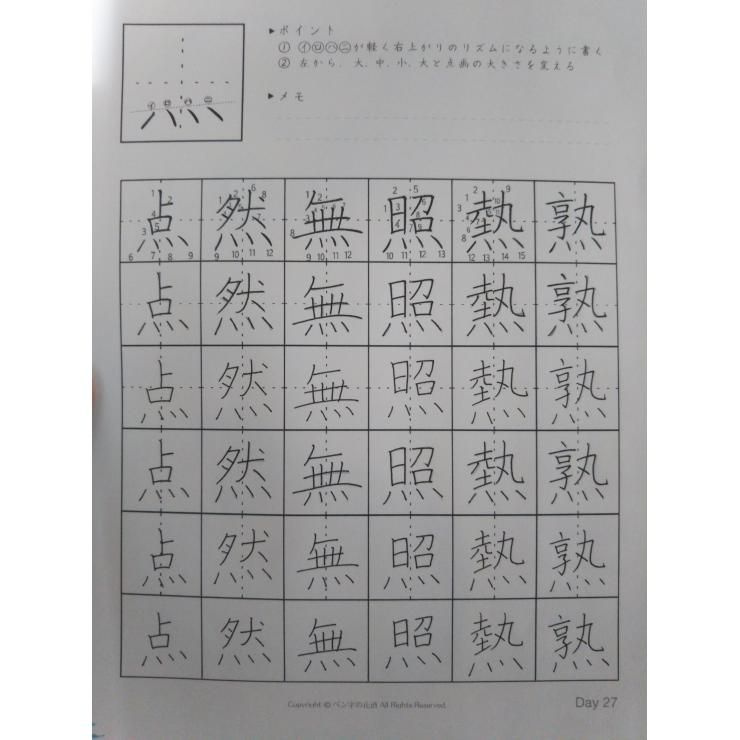 ▶ポイント
① ㋑㋺㋩㋥が軽く右上がりのリズムになるように書く
② 左から、大、中、小、大と点画の大きさを変える
▶メモ
㋑ ㋺ ㋩ ㋥
点 然 無 照 熱 熟
点 然 無 照 熱 熟
点 然 無 照 熱 熟
点 然 無 照 熱 熟
点 然 無 照 熱 熟
点 然 無 照 熱 熟
Copyright © ペン字の花道 All Rights Reserved.
Day 27